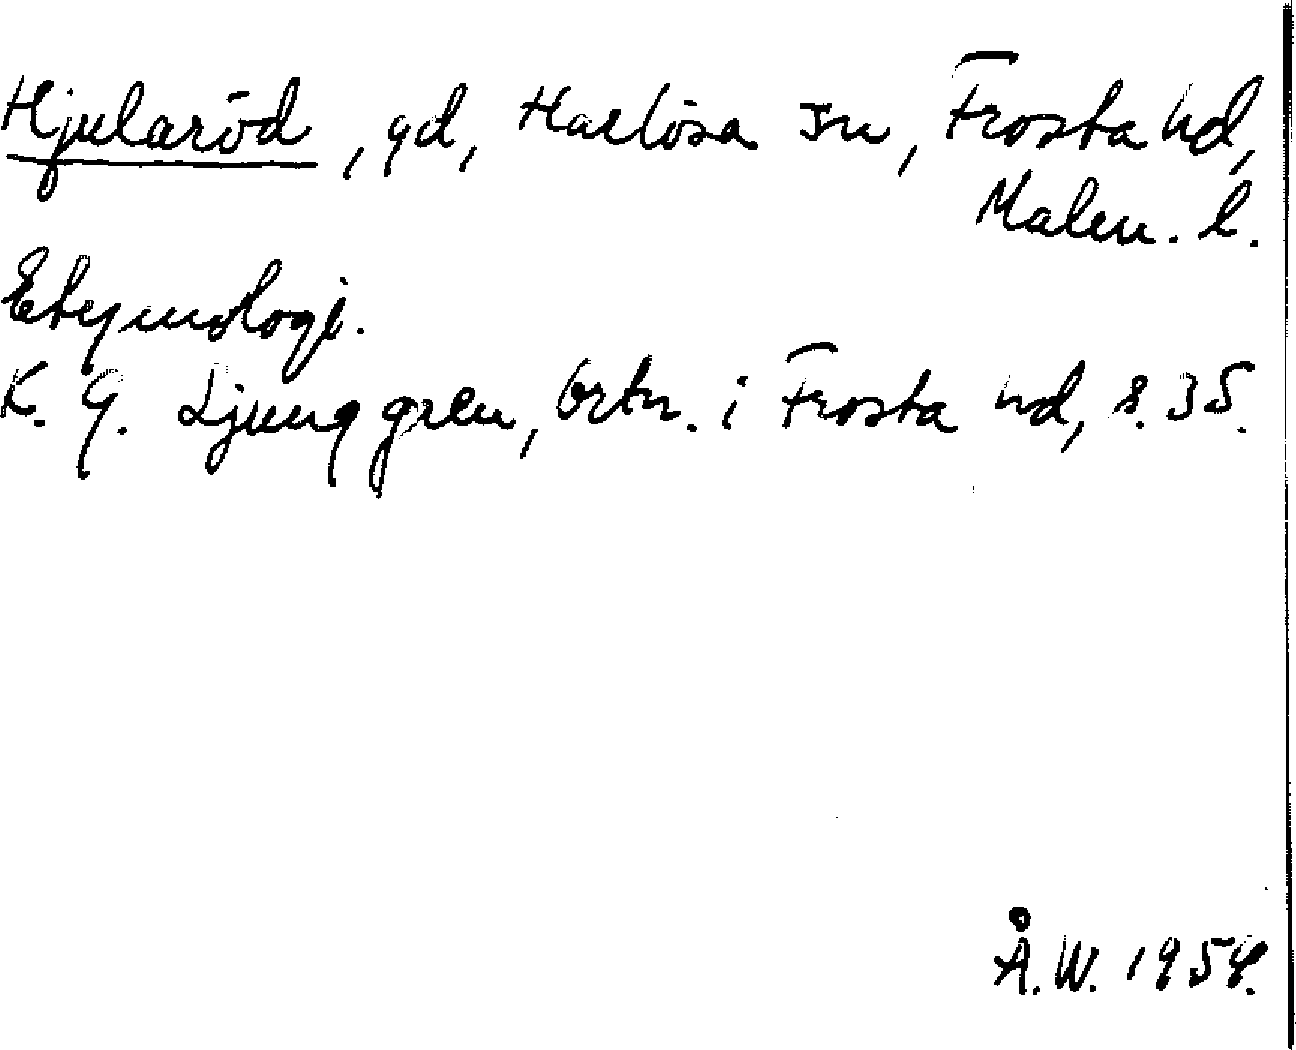 Hjularöd, gd, Harlösa sn, Frosta hd,
Malm. l.
Etymologi.
K. G. Ljunggren, Ortn. i Frosta hd, s. 35.
Å. W. 1954.